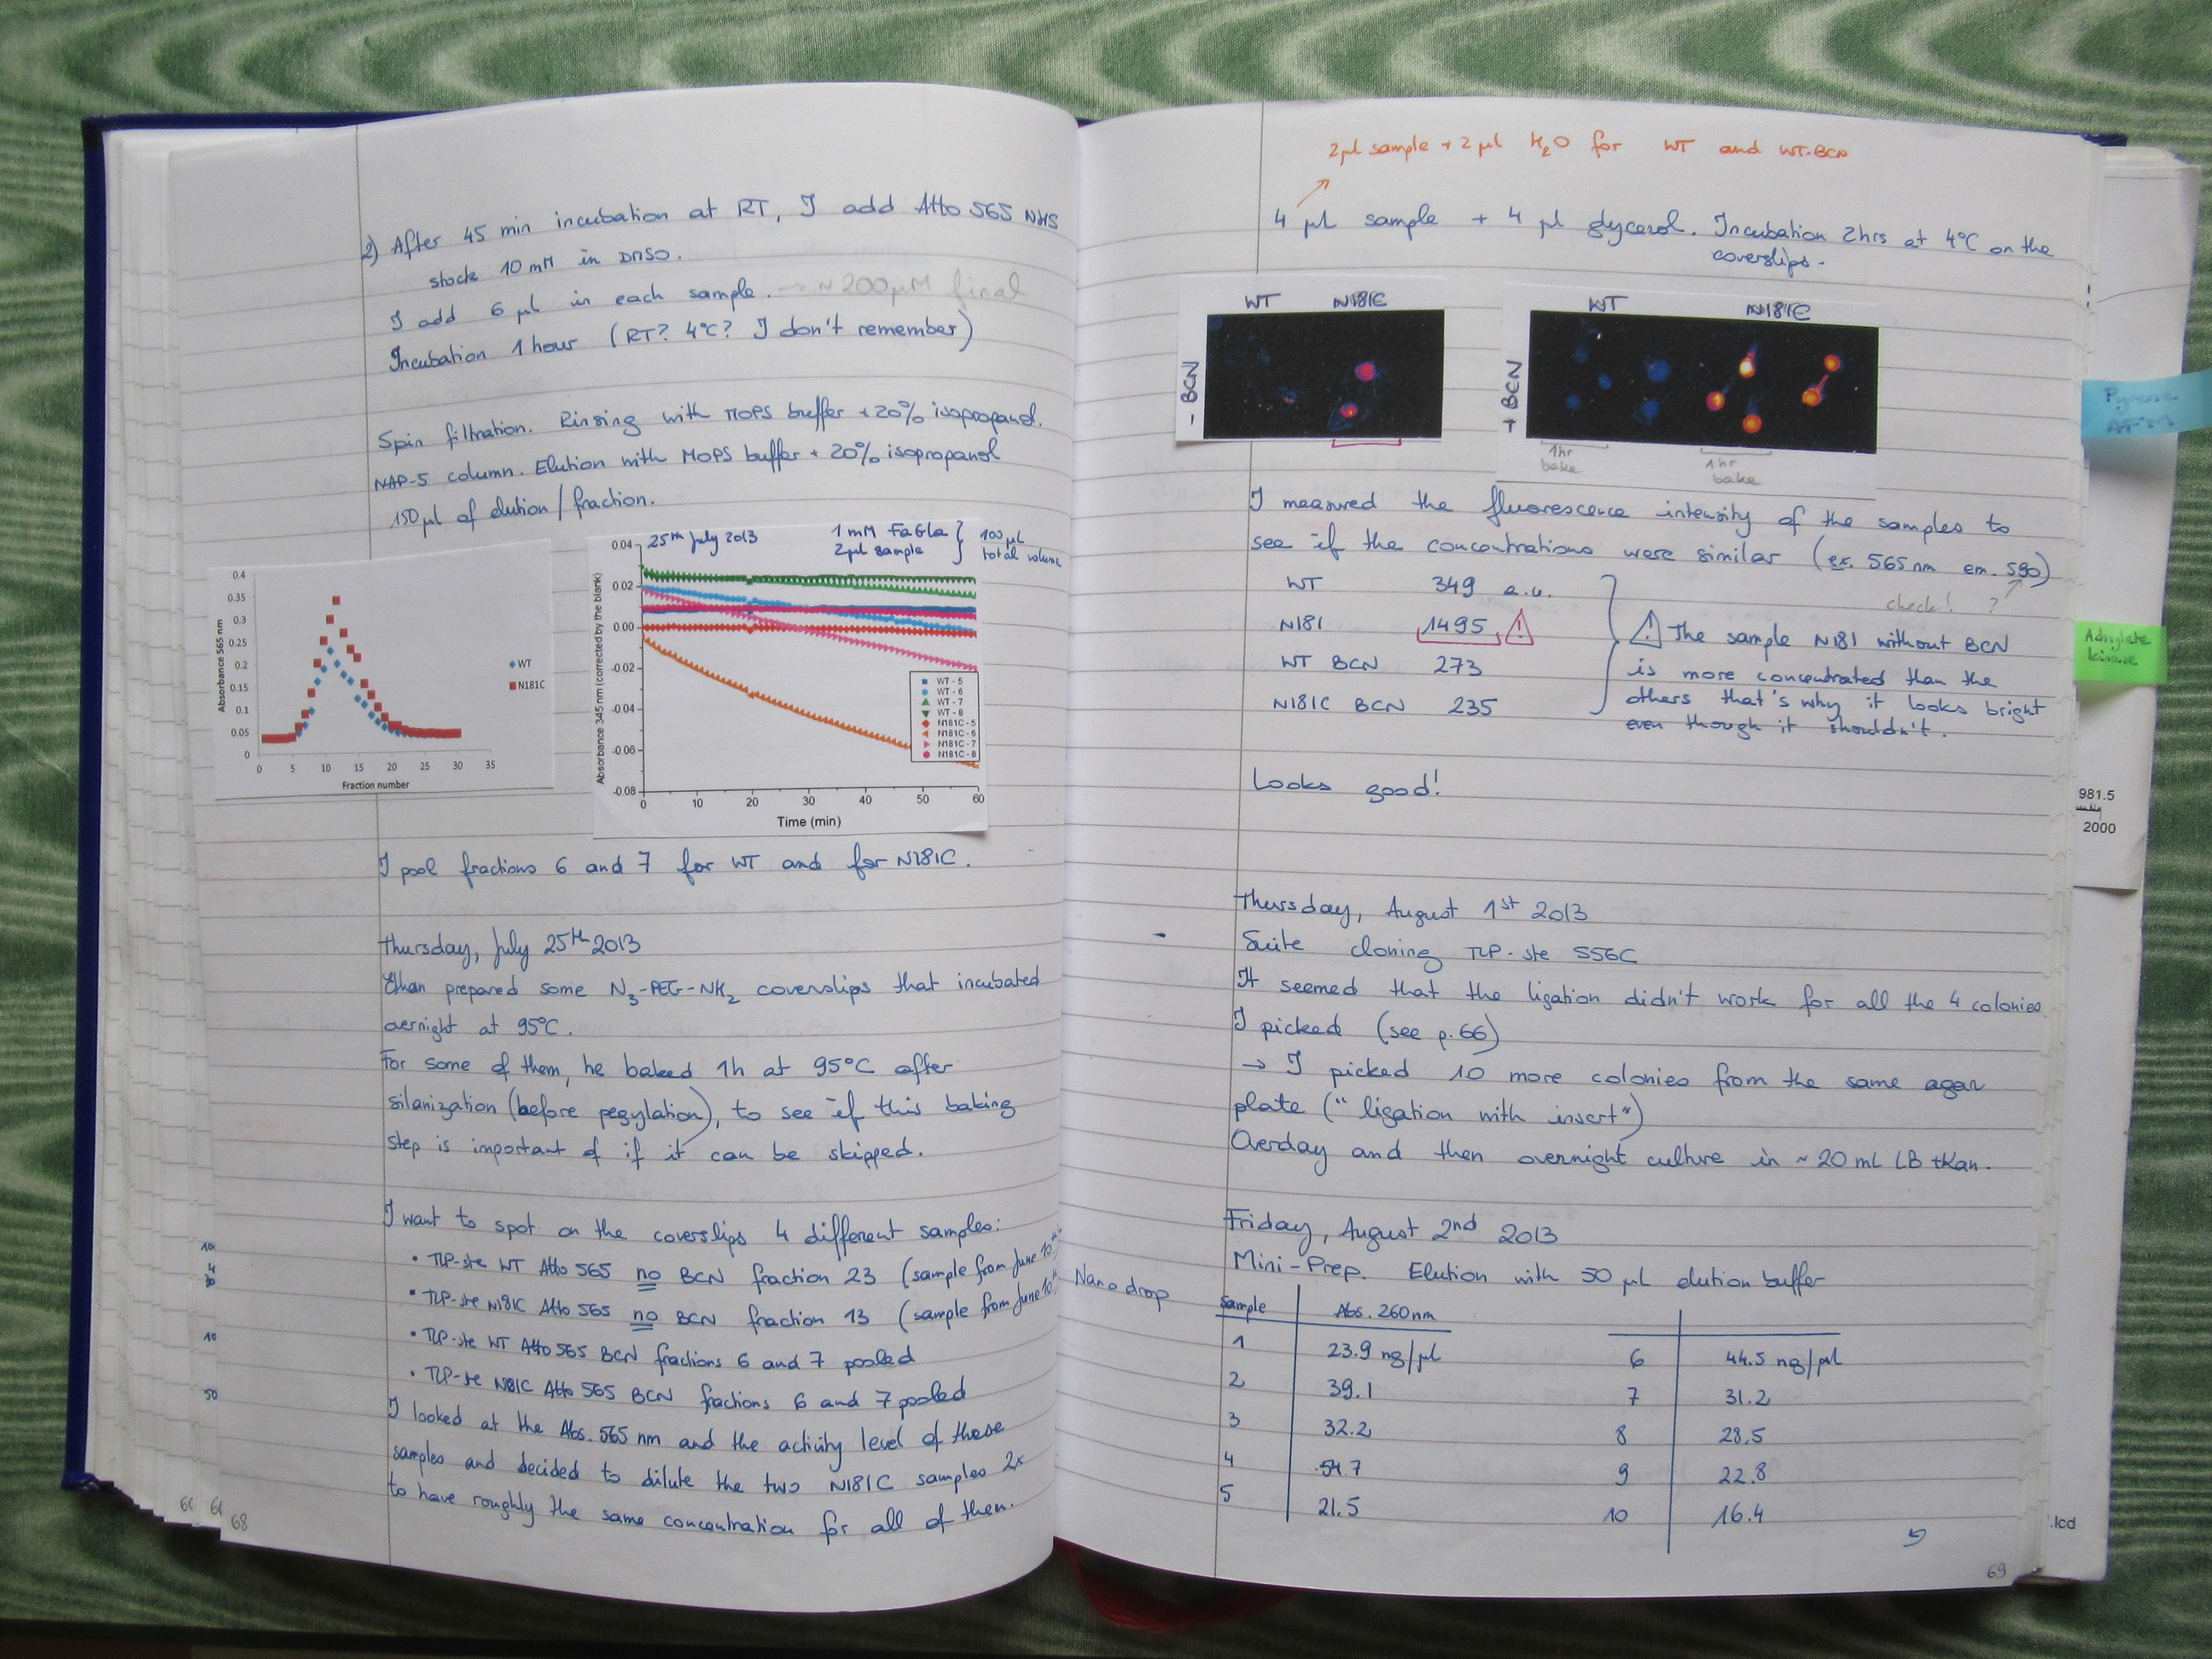 2) After 45 min incubation at RT, I add Atto 565 NHS
stock 10 mM in DMSO.
I add 6 µl in each sample. → ~ 200 µM final
Incubation 1 hour (RT? 4°C? I don't remember)
Spin filtration. Rinsing with MOPS buffer + 20% isopropanol.
NAP-5 column. Elution with MOPS buffer + 20% isopropanol
150 µl of elution / fraction.
Absorbance 565 nm
0.4
0.35
0.3
0.25
0.2
0.15
0.1
0.05
0
0 5 10 15 20 25 30 35
Fraction number
WT
N181C
25th July 2013
1 mM FaGLa
2µl sample
100 µL
total volume
Absorbance 345 nm (corrected by the blank)
0.04
0.02
0.00
-0.02
-0.04
-0.06
-0.08
WT - 5
WT - 6
WT - 7
WT - 8
N181C - 5
N181C - 6
N181C - 7
N181C - 8
0 10 20 30 40 50 60
Time (min)
I pool fractions 6 and 7 for WT and for N181C.
Thursday, July 25th 2013
Ethan prepared some N3-PEG-NH2 coverslips that incubated
overnight at 95°C.
For some of them, he baked 1h at 95°C after
silanization (before pegylation), to see if this baking
step is important of if it can be skipped.
I want to spot on the coverslips 4 different samples:
• TLP-ste WT Atto 565 no BCN fraction 23 (sample from June 10th
• TLP-ste N181C Atto 565 no BCN fraction 13 (sample from June 10th
• TLP-ste WT Atto 565 BCN fractions 6 and 7 pooled
• TLP-ste N181C Atto 565 BCN fractions 6 and 7 pooled
I looked at the Abs. 565 nm and the activity level of these
samples and decided to dilute the two N181C samples 2x
to have roughly the same concentration for all of them.
10
50
68
2µl sample + 2 µl H2O for WT and WT-BCN
4 µl sample + 4 µl glycerol. Incubation 2hrs at 4°C on the
coverslips.
WT N181C
- BCN
WT N181C
+ BCN
1hr
bake
1hr
bake
I measured the fluorescence intensity of the samples to
see if the concentrations were similar (ex. 565 nm em. 590)
check! ?
WT 349 a.u.
N181 1495 !
WT BCN 273
N181C BCN 235
! The sample N181 without BCN
is more concentrated than the
others that's why it looks bright
even though it shouldn't.
Looks good!
Thursday, August 1st 2013
Suite cloning TLP-ste S56C
It seemed that the ligation didn't work for all the 4 colonies
I picked (see p.66)
→ I picked 10 more colonies from the same agar
plate ("ligation with insert")
Overday and then overnight culture in ~ 20 mL LB +Kan.
Friday, August 2nd 2013
Mini-Prep. Elution with 50 µl elution buffer
Nanodrop
Sample Abs. 260nm
1 23.9 ng/µl 6 44.5 ng/µl
2 39.1 7 31.2
3 32.2 8 28.5
4 54.7 9 22.8
5 21.5 10 16.4
69
Adenylate
kinase
981.5
2000
.lcd